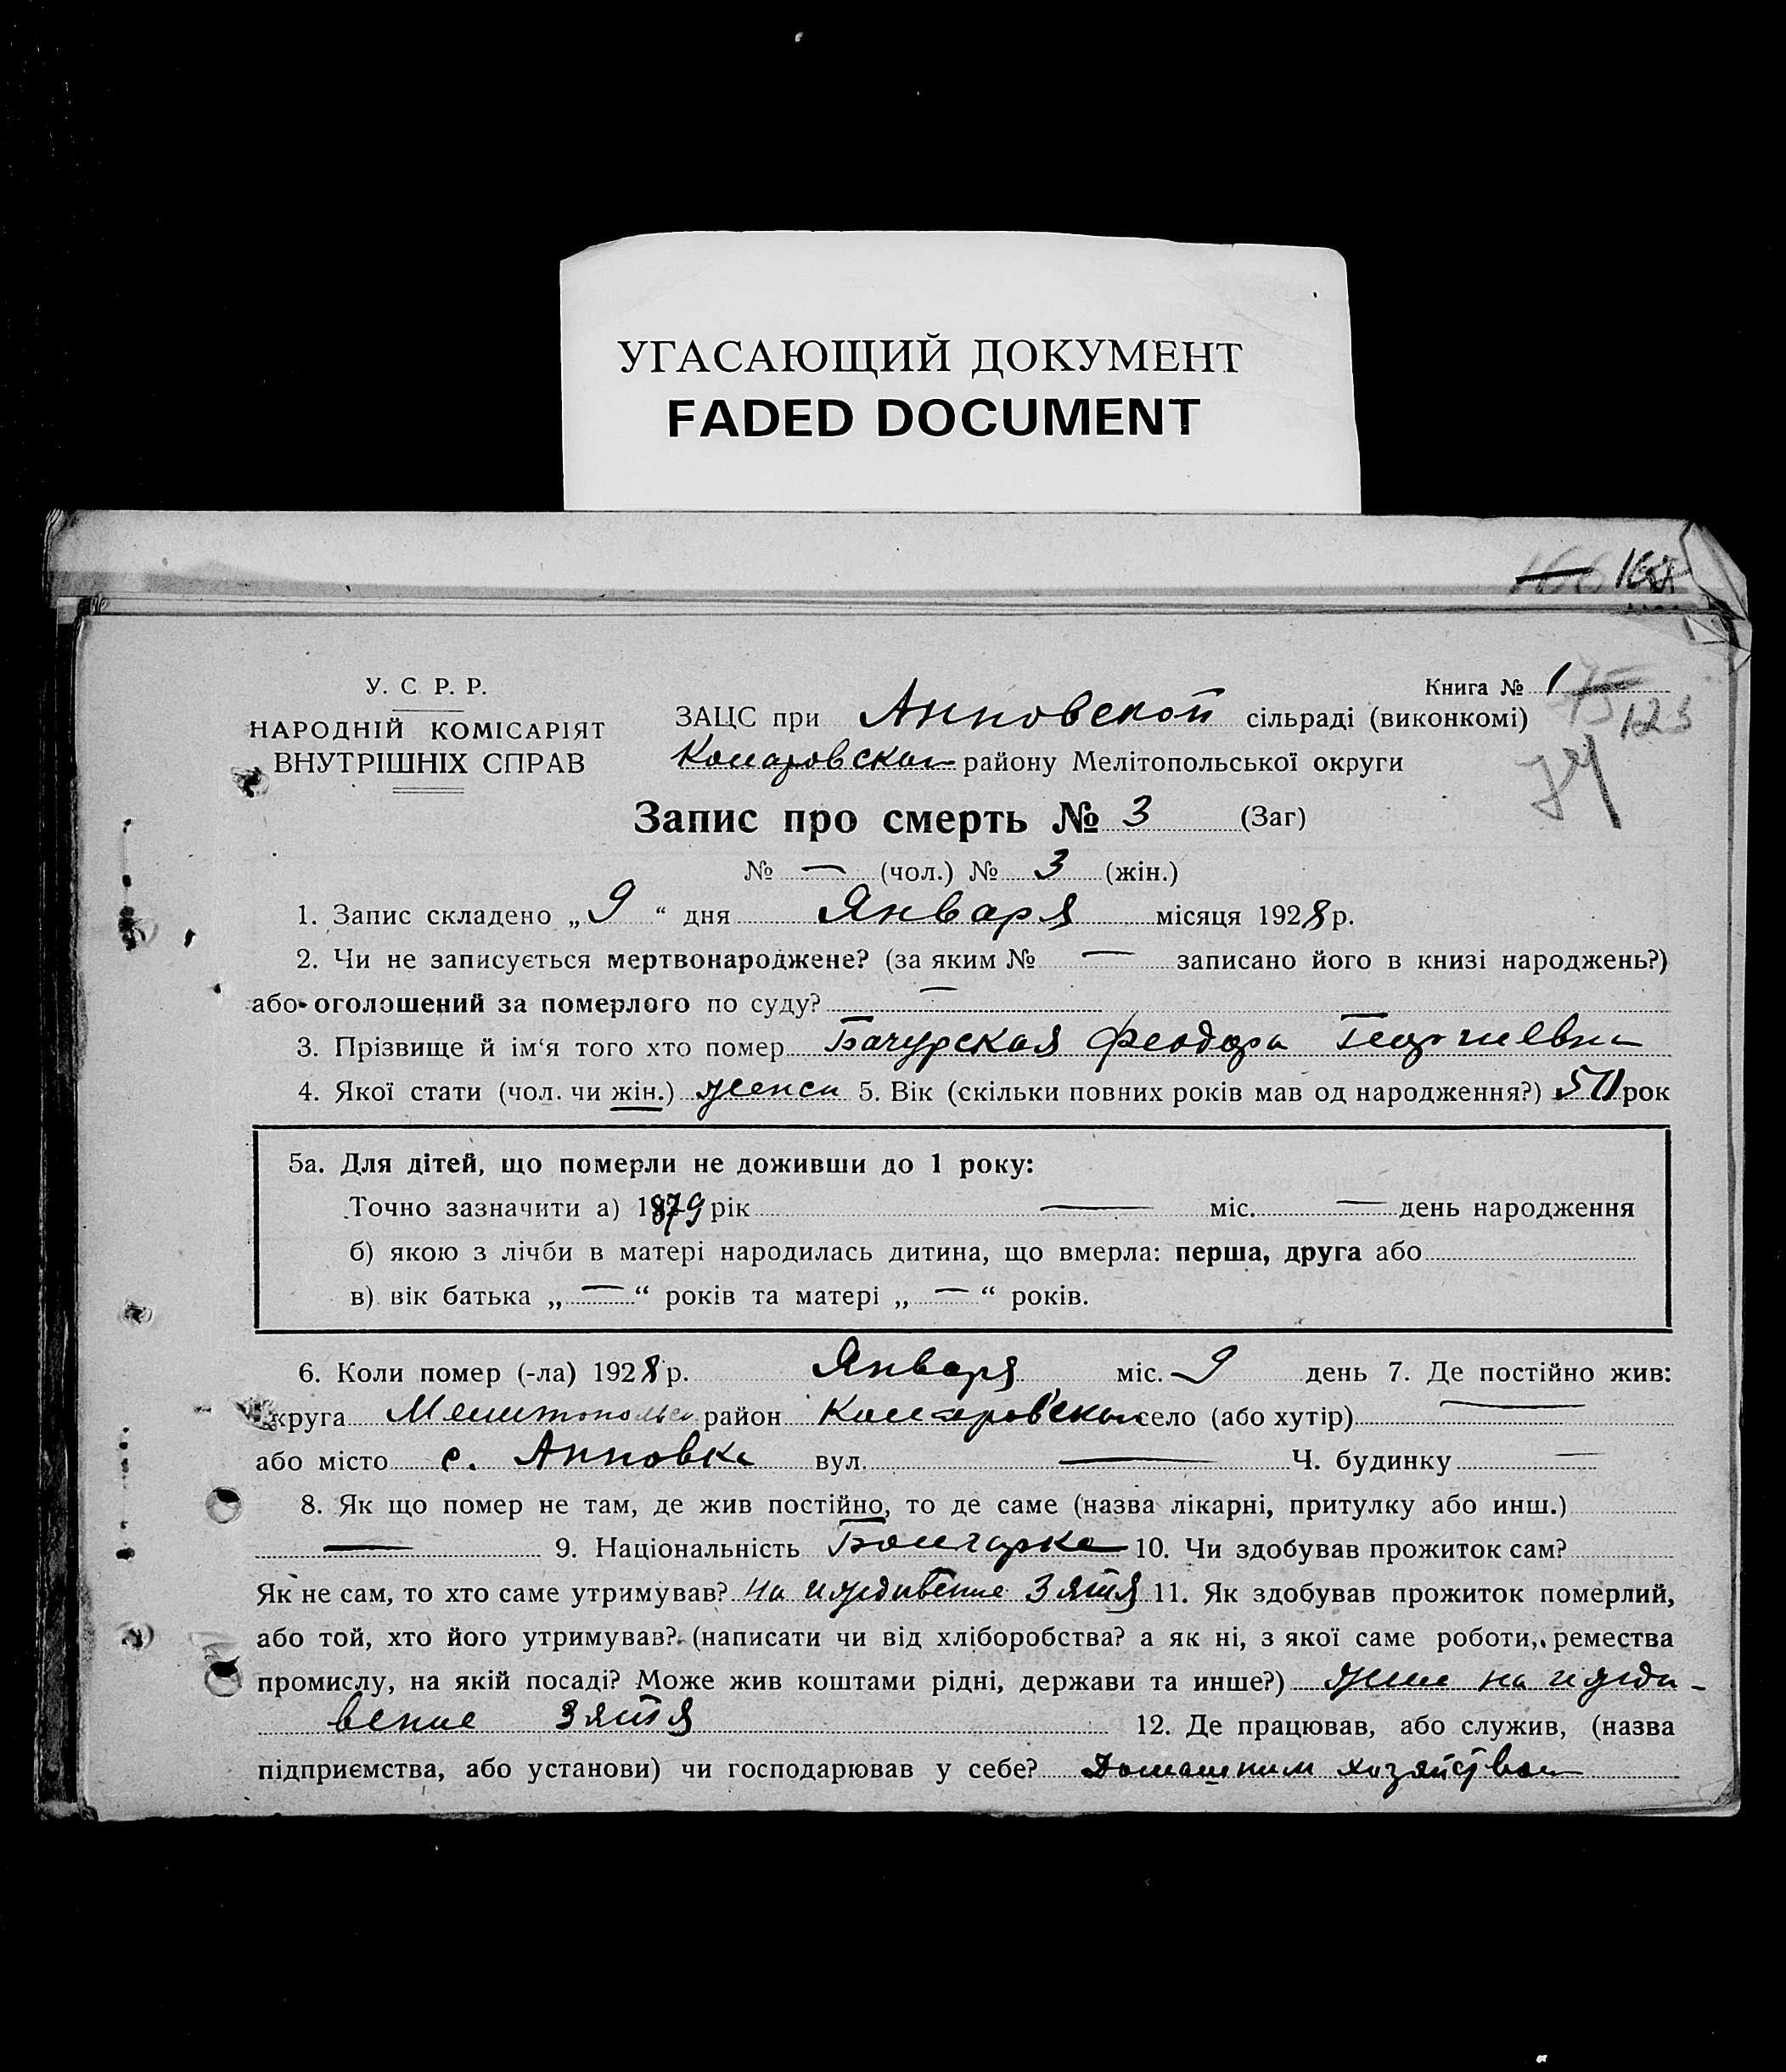 УГАСАЮЩИЙ ДОКУМЕНТ
FADED DOCUMENT
166 168
У. С. Р. Р.
НАРОДНІЙ КОМІСАРІЯТ
ВНУТРІШНІХ СПРАВ
Книга № 1
75 123
74
ЗАЦС при Анновской сільраді (виконкомі)
району Мелітопольської округи
Запис про смерть № 3 (Заг)
№ — (чол.) № 3 (жін.)
1. Запис складено „ 9 “ дня Января місяця 1928 р.
2. Чи не записується мертвонароджене? (за яким № — записано його в книзі народжень?)
або оголошений за померлого по суду? —
3. Прізвище й ім‘я того хто помер Бачурская Феодора Георгиевна
4. Якої стати (чол. чи жін.) женск 5. Вік (скільки повних років мав од народження?) 50 рок
5а. Для дітей, що померли не доживши до 1 року:
Точно зазначити а) 1879 рік — міс. — день народження
б) якою з лічби в матері народилась дитина, що вмерла: перша, друга або
в) вік батька „ — “ років та матері „ — “ років.
6. Коли помер (-ла) 1928 р. Января міс. 9 день 7. Де постійно жив:
округа Мелитопольск район село (або хутір) —
або місто с. Анновка вул. — Ч. будинку —
8. Як що помер не там, де жив постійно, то де саме (назва лікарні, притулку або инш.)
— 9. Національність Болгарка 10. Чи здобував прожиток сам?
Як не сам, то хто саме утримував? на иждивение зятя 11. Як здобував прожиток померлий,
або той, хто його утримував? (написати чи від хліборобства? а як ні, з якої саме роботи, ремества
промислу, на якій посаді? Може жив коштами рідні, держави та инше?) на ижди-
вение зятя 12. Де працював, або служив, (назва
підприємства, або установи) чи господарював у себе? Домашним хозяйством